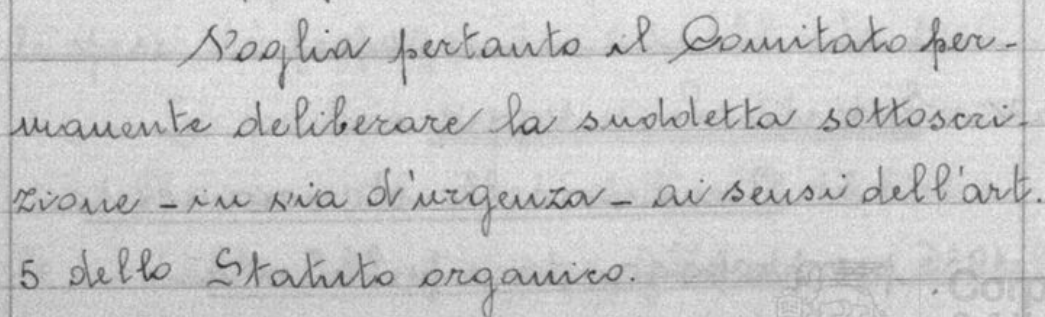 Voglia pertanto il Comitato per-
manente deliberare la suddetta sottoscri-
zione - in via d'urgenza - ai sensi dell'art.
5 dello Statuto organico.